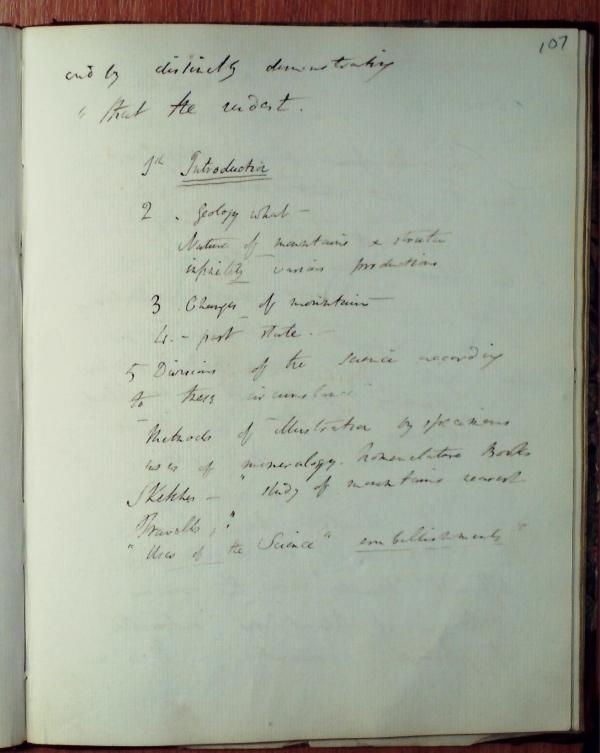 107
and by distinctly demonstrating
" that the rudest.
1st Introduction
2 . Geology what -
Nature of mountains & strata
infinitely various productions
3 . Changes of mountains
4. - past state. -
5 Divisions of the science according
to these circumstances
Methods of Illustration by specimens
uses of mineralogy. Nomenclature Books
Sketches - " study of mountains nearest
Travells, "
" Uses of the Science " embellishments "